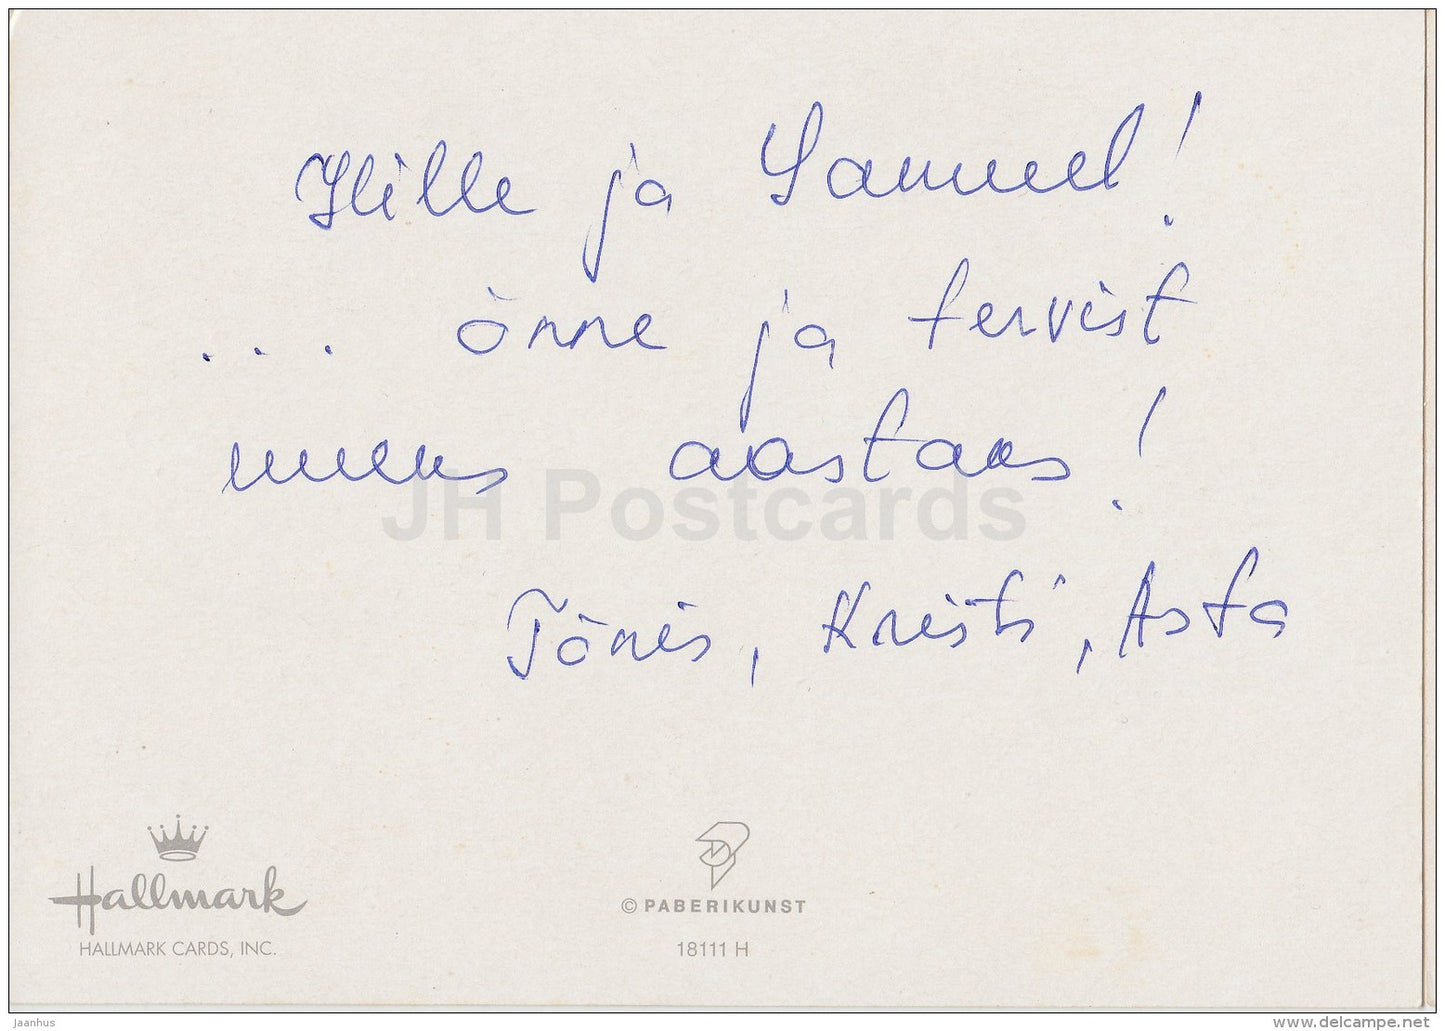 Hille ja Samuel!
... õnne ja tervist
uueks aastaks!
Tõnis, Kristi, Asta
JH Postcards
Hallmark
HALLMARK CARDS, INC.
© PABERIKUNST
18111 H
jaanhus
www.delcampe.net